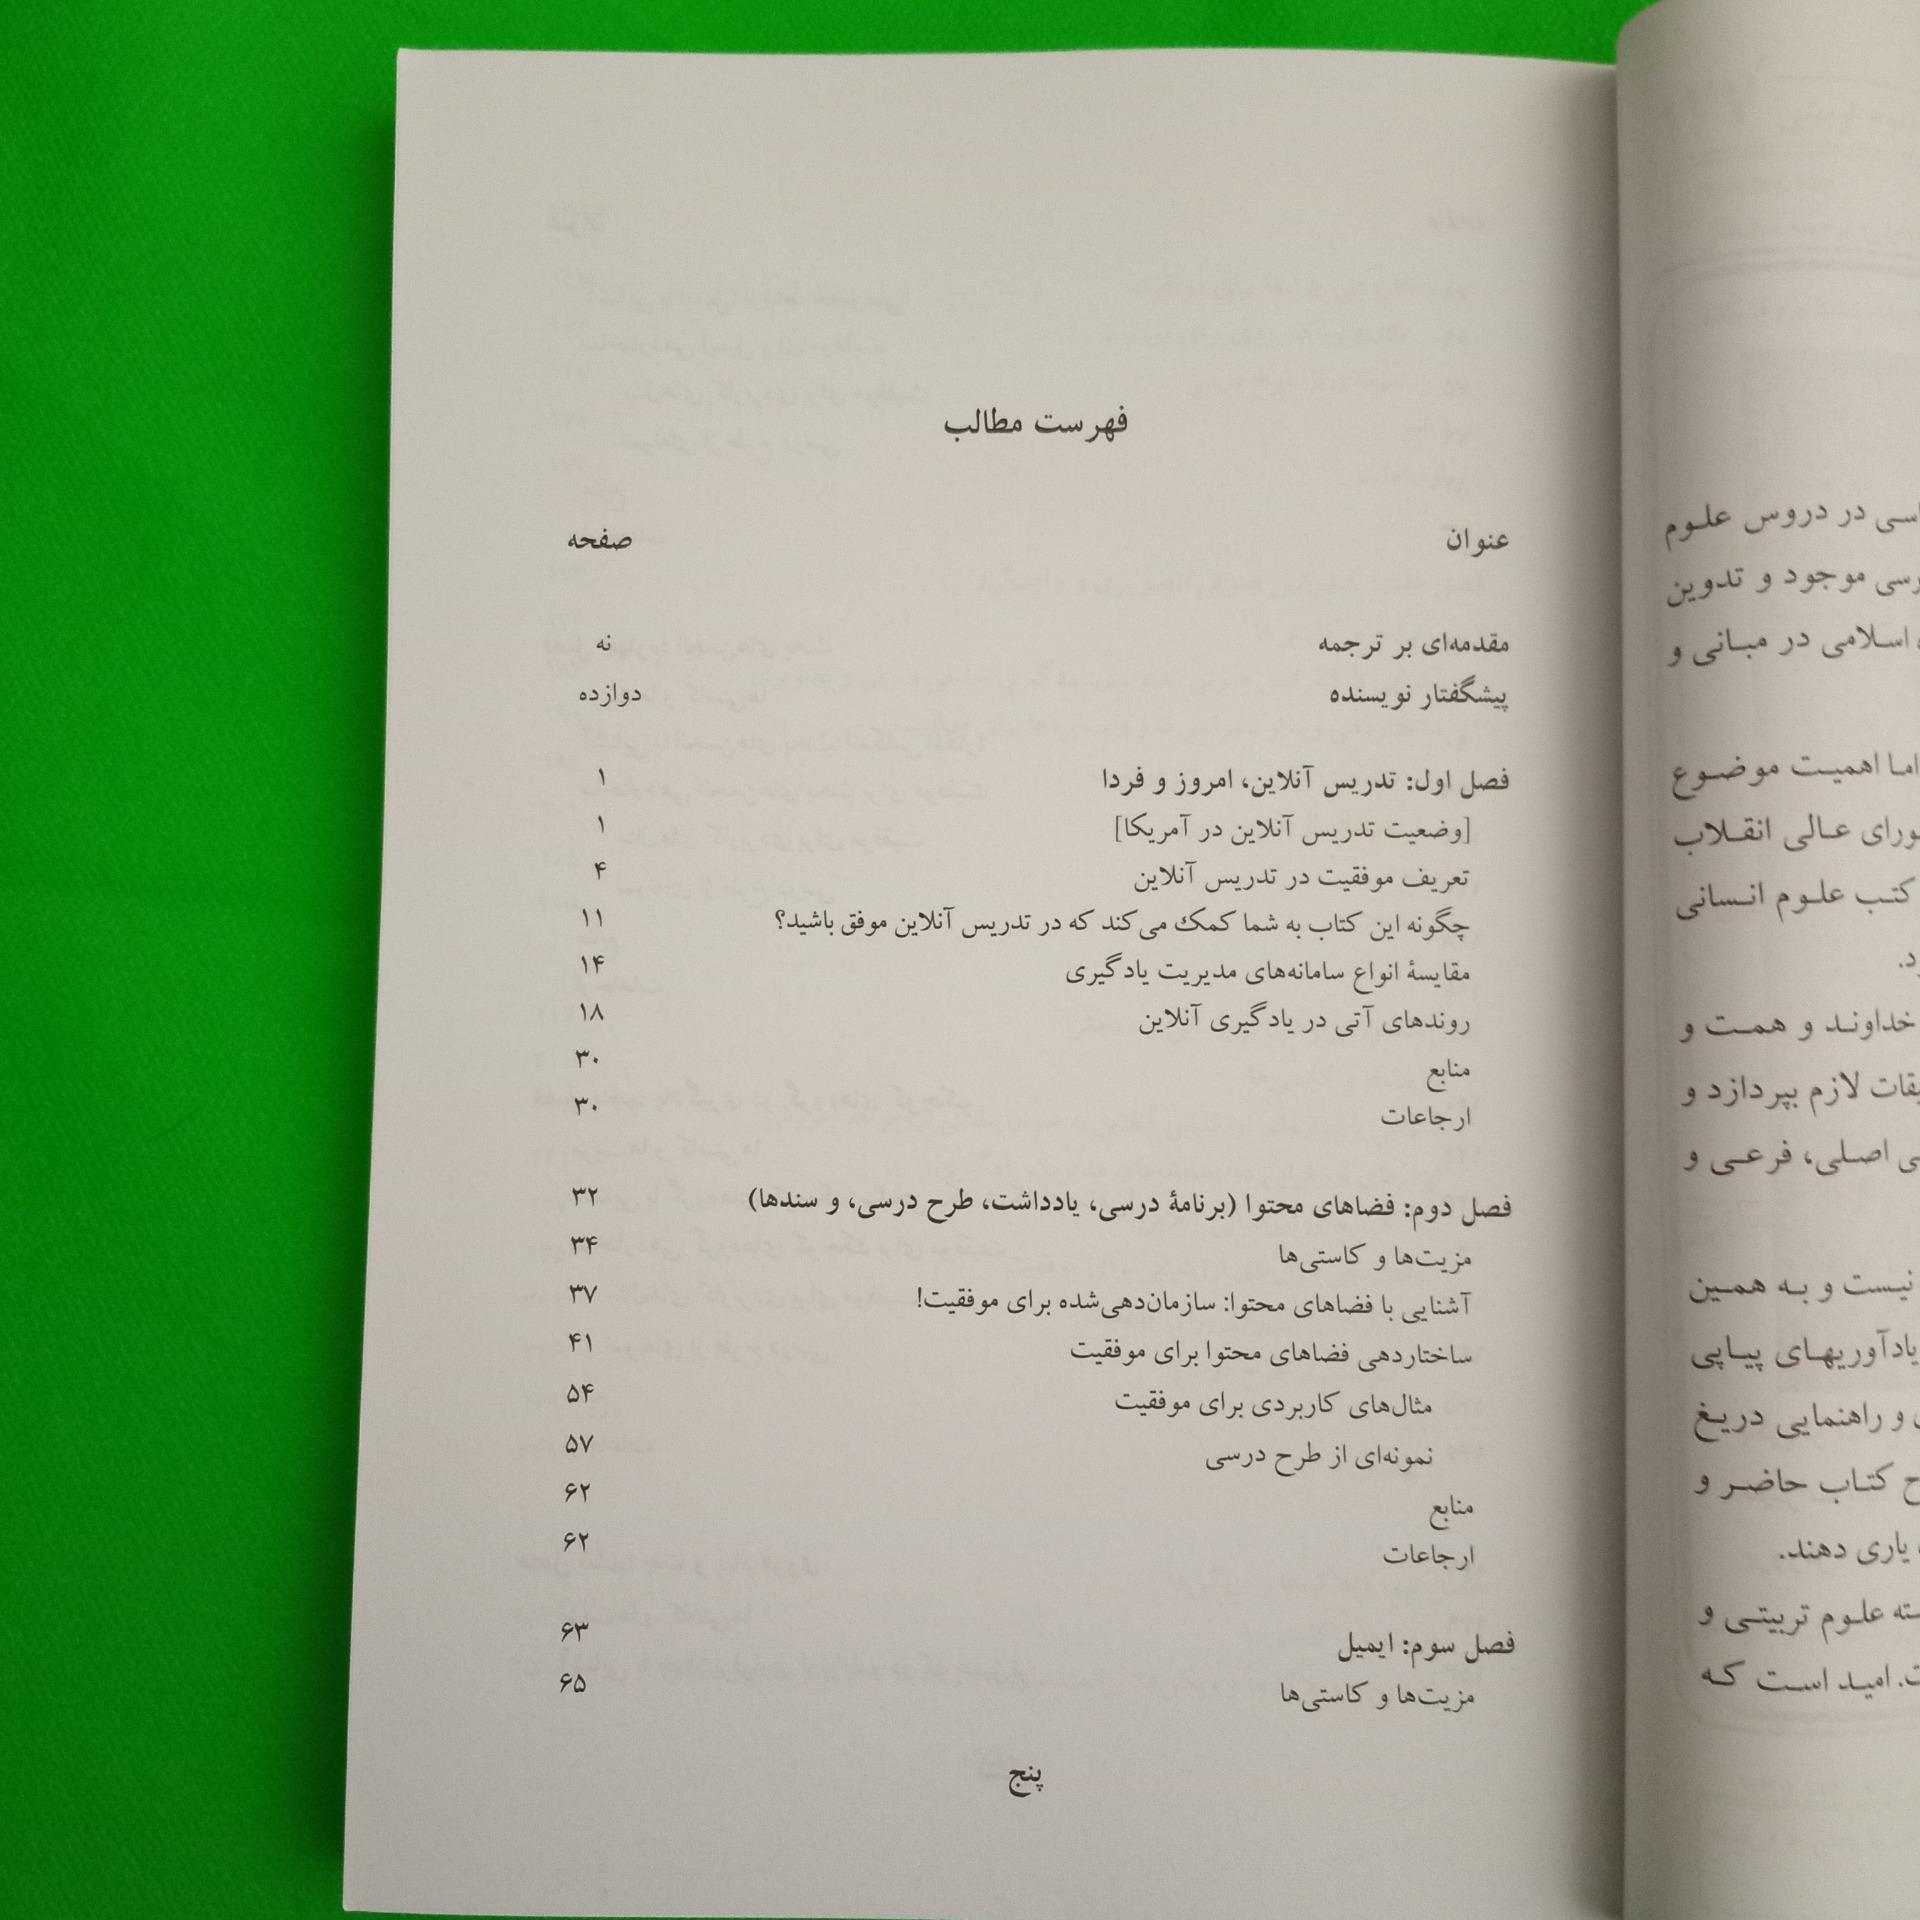 اسی در دروس علوم
رسی موجود و تدوین
اسلامی در مبانی و
اما اهمیت موضوع
ورای عالی انقلاب
کتب علوم انسانی
د.
خداوند و همت و
لازم بپردازد و
ی اصلی، فرعی و
نیست و به همین
یادآوریهای پیاپی
و راهنمایی دریغ
ح کتاب حاضر و
یاری دهند.
علوم تربیتی و
ت. امید است که
فهرست مطالب
عنوان صفحه
مقدمه‌ای بر ترجمه نه
پیشگفتار نویسنده دوازده
فصل اول: تدریس آنلاین، امروز و فردا ۱
[وضعیت تدریس آنلاین در آمریکا] ۱
تعریف موفقیت در تدریس آنلاین ۴
چگونه این کتاب به شما کمک می‌کند که در تدریس آنلاین موفق باشید؟ ۱۱
مقایسهٔ انواع سامانه‌های مدیریت یادگیری ۱۴
روندهای آتی در یادگیری آنلاین ۱۸
منابع ۳۰
ارجاعات ۳۰
فصل دوم: فضاهای محتوا (برنامهٔ درسی، یادداشت، طرح درسی، و سندها) ۳۲
مزیت‌ها و کاستی‌ها ۳۴
آشنایی با فضاهای محتوا: سازمان‌دهی‌شده برای موفقیت! ۳۷
ساختاردهی فضاهای محتوا برای موفقیت ۴۱
مثال‌های کاربردی برای موفقیت ۵۴
نمونه‌ای از طرح درسی ۵۷
منابع ۶۲
ارجاعات ۶۲
فصل سوم: ایمیل ۶۳
مزیت‌ها و کاستی‌ها ۶۵
پنج